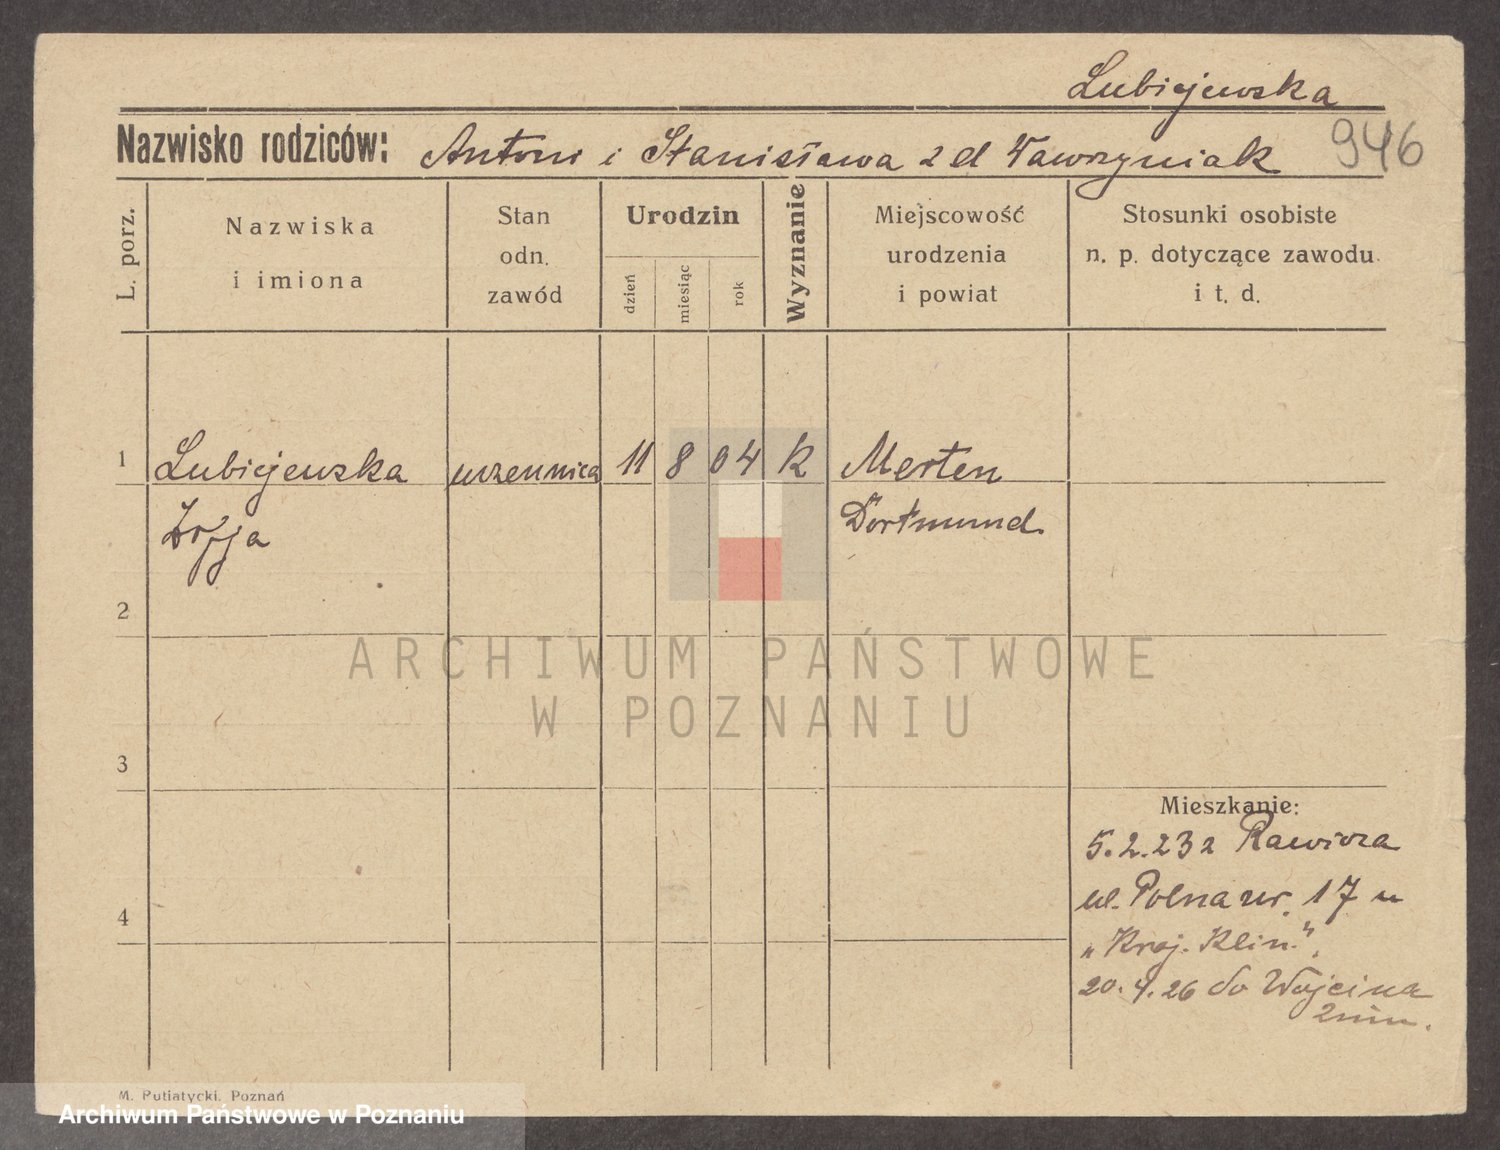 Lubiejewska
Nazwisko rodziców: Antoni i Stanisława z d Wawrzyniak 946
L. porz.
Nazwiska
i imiona
Stan
odn.
zawód
Urodzin
dzień
miesiąc
rok
Wyznanie
Miejscowość
urodzenia
i powiat
Stosunki osobiste
n. p. dotyczące zawodu
i t. d.
1 Lubiejewska uczennica 11 8 04 k Merten
Zofja Dortmund
2
ARCHIWUM PAŃSTWOWE
W POZNANIU
3
Mieszkanie:
5.2.23 z Rawicza
ul. Polna nr. 17 u
4
„Kraj. Klin.”
20.4.26 do Wójcina
Żnin.
M. Putiatycki, Poznań
Archiwum Państwowe w Poznaniu